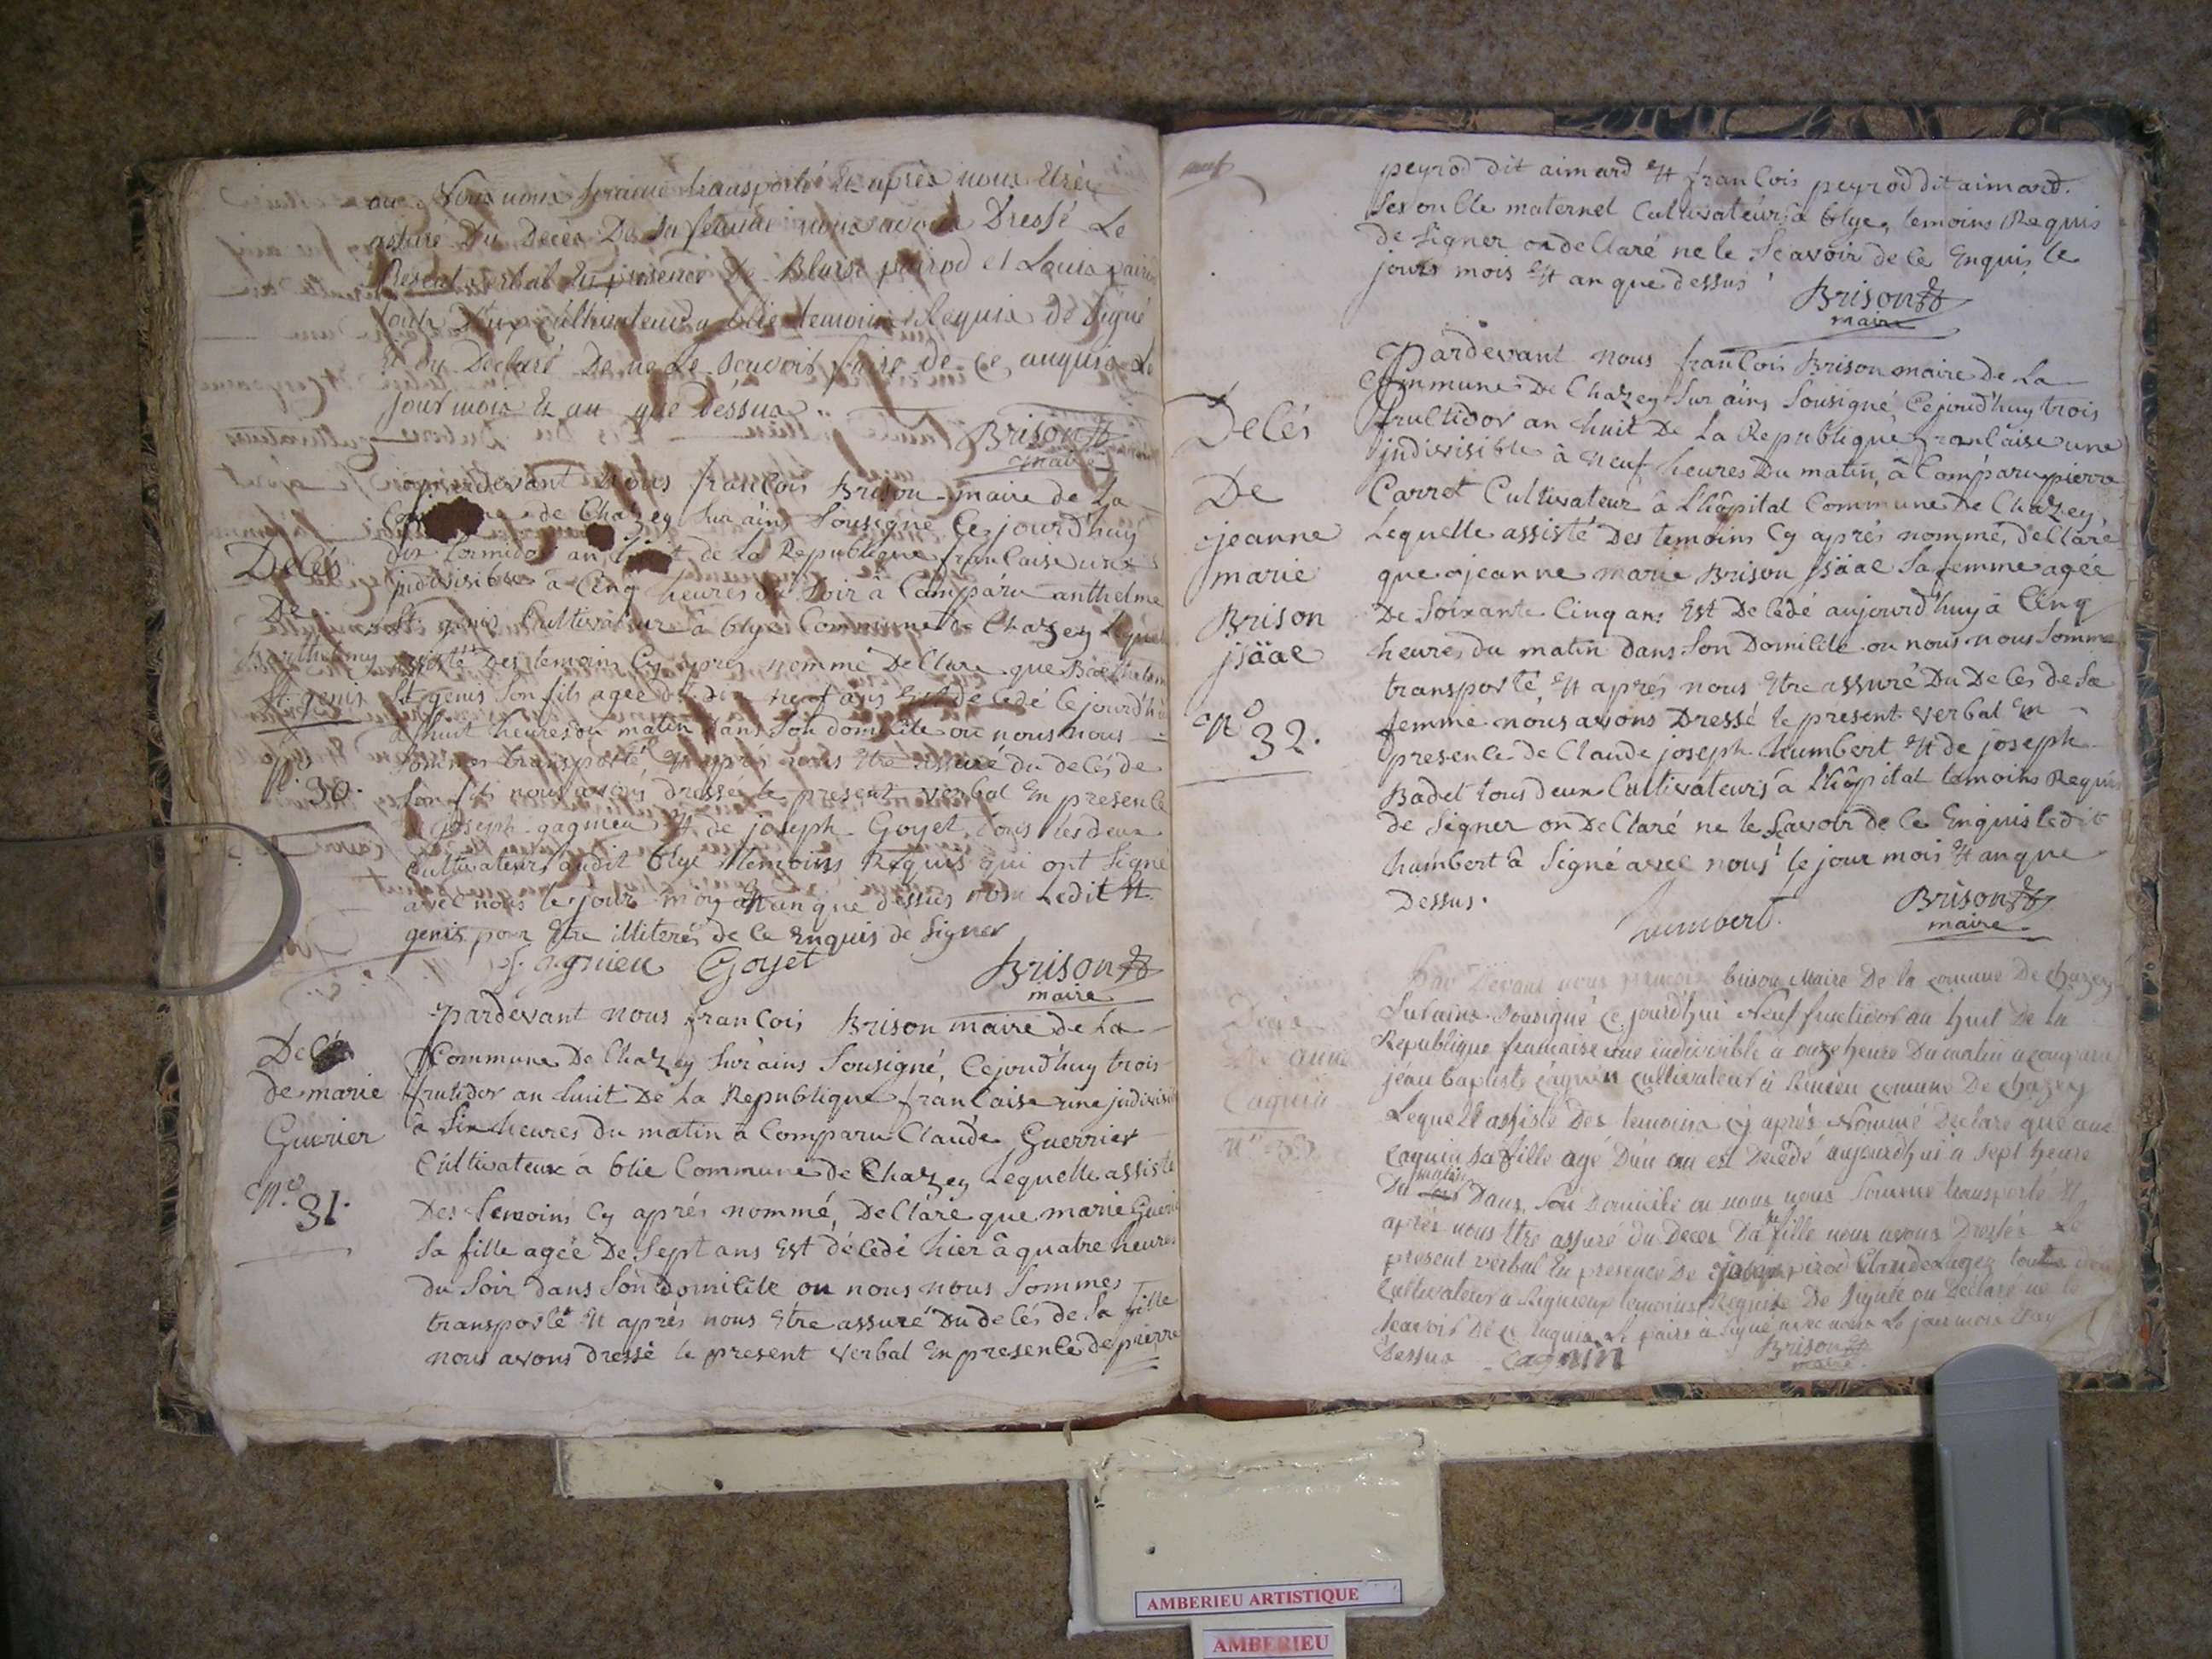 ou Nous nous somme transporté Et après nous Etre
assuré Du Decès De Sa femme nous avons Dressé Le
Present verbal En presence De Blaise peirod et Louis
cultivateurs a blie temoins Requis de Signé
On Declaré De ne Le Scavoir faire de ce anquis Le
jour mois Et an que dessus
Brison
maire
pardevant Nous franCois Brison maire de La
de Chazey sur ains Sousigné Ce jourd'huy
dix termidor an huit de La Republique franCaise une
jndivisibles à Cinq heures du Soir à Comparu anthelme
St. genis Cultivateur à blye Commune de Chazey Lequel
assisté Des temoins Cy après nommé DeClare que Barthelemy
St genis Son fils agee de dix neuf ans Est deCedé Cejourd'h
à huit heures du matin dans Son domiCile ou nous nous
sommes transporté Et après nous Etre assuré du deCés de
Son fils nous avons dressé le present verbal En presenCe
de joseph gagnieu Et de joseph Goyet tous les deux
Cultivateurs audit blye temoins Requis qui ont Signé
avec nous le jour mois Et an que dessus non Ledit St.
genis pour Etre illiterés de Ce Enquis de Signer
DeCés
De
Barthelemy
St. genis
N° 30.
j. gagnieu Goyet Brison
maire
pardevant nous franCois Brison maire de La
Commune De Chazey Sur ains Sousigné, Cejourd'huy trois
frutidor an huit De La Republique franCaise une jndivisi
à Six heures du matin à Comparu Claude Guerrier
Cultivateur à blie Commune de Chazey Lequelle assisté
Des temoins Cy aprés nommé, DeClare que marie Gueri
Sa fille agée De Sept ans Est déCedé hier à quatre heures
du Soir dans Son domiCile ou nous nous Sommes
transporté Et aprés nous Etre assuré Du deCés de Sa fille
nous avons dressé le present verbal En presenCe de pierre
DeCés
de marie
Guerier
N.° 31.
peyrod dit aimard Et franCois peyrod dit aimard.
Ses onCle maternel Cultivateurs à blye, temoins Requis
de Signer on deClaré ne le Scavoir de Ce Enquis, le
jours mois Et an que dessus
Brison
maire
Pardevant nous franCois Brison maire De La
Commune De Chazey Sur ains Sousigné, Cejourd'huy trois
fruCtidor an huit De La Republique FranCaise une
jndivisible à neuf heures Du matin, à Comparu pierre
Carret Cultivateur à Lhôpital Commune De Chazey
Lequelle assisté Des temoins Cy aprés nommé, deClare
que jeanne marie Brison jsäac Sa femme agée
De Soixante Cinq ans Est DeCedé aujourd'huy à Cinq
heures du matin dans Son DomiCile ou nous nous Somme
transporté, Et aprés nous Etre assuré Du DeCés de Sa
femme nous avons Dressé le present verbal En
presenCe de Claude joseph humbert Et de joseph
Badet tous deux Cultivateurs à Lhôpital temoins Requis
de Signer on DeClaré ne le Savoir de Ce Enquis Ledit
humbert à Signé avec nous le jour mois Et an que
Dessus.
DeCés
De
jeanne
marie
Brison
jsäac
N° 32.
humbert. Brison
maire
Par Devant nous françois brison Maire De la comune De chazey
Sur ains Sousigné Ce jourd'hui Neuf fructidor an huit De La
Republique francaise une indivisible à onze heure Du matin a comparu
jean baptiste Cagnin cultivateur à Rineou comune De chazey
Lequelle assisté Des temoins cy aprés Nommé Declare que ane
Cagnin Sa fille agé D'un an est Decedé aujourd'hui à Sept heure
Du matin Dans Son Domicile ou nous nous Somme transporté Et
après nous Etre assuré du Deces Da Sa fille nous avons Dressés Le
present verbal En presence De peirod Claude Lagey tous deux
Cultivateur a temoins Requise De Signé on Déclaré ne le
Scavoir De ce Enquis Le paire à Signé avec nous Le jour mois Et an
Dessus Cagnin Brison
maire
Décés
anne
Cagnin
N° 33
AMBERIEU ARTISTIQUE
AMBERIEU